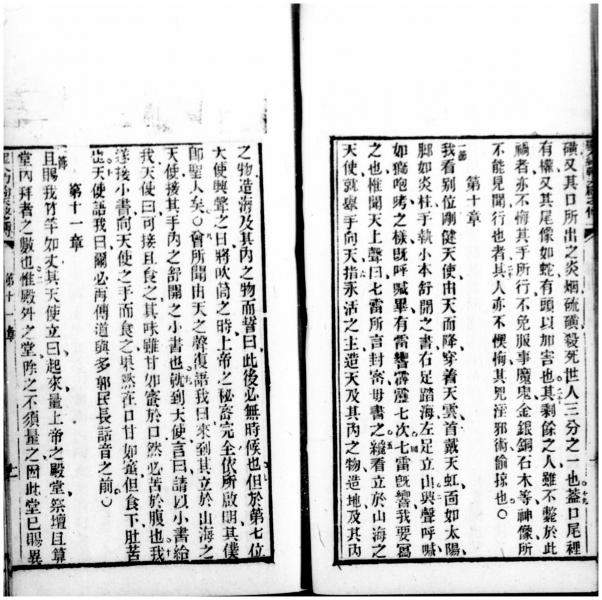 磺又其口所出之炎烟硫磺殺死世人三分之一也蓋口尾裡
有權又其尾像如蛇有頭以加害也其剩餘之人雖不斃於此
禍者亦不悔其手所行不免服事魔鬼金銀銅石木等神像所
不能見聞行也者其人亦不懊悔其兇淫邪術偷掠也〇
第十章
一節
我看別位剛健天使由天而降穿着天雲首戴天虹面如太陽
脚如炎柱手執小本舒開之書右足踏海左足立山興聲呼喊
如獅咆哮之樣旣呼喊畢有雷響霹靂七次七雷旣響我要寫
之也惟聞天上聲曰七雷所言封密毋書之纔看立於山海之
天使就擧手向天指永活之主造天及其內之物造地及其內
之物造海及其內之物而誓曰此後必無時候也但於第七位
天使興聲之日將吹茼之時上帝之秘密完全依所啟明其僕
卽聖人矣〇曾所聞由天之聲復語我曰來到其立於山海之
天使接其手內之舒開之小書也就到天使言曰請以小書給
我天使曰可接且食之其味雖甘如蜜於口然必苦於腹也我
遂接小書向天使之手而食之果然在口甘如蜜但食下肚苦
也天使語我曰爾必再傳道與多郭民長話音之前〇
第十一章
一節
且賜我竹竿如丈其天使立曰起來量上帝之殿堂祭壇且算
堂內拜者之數也惟殿外之堂除之不須量之因此堂已賜異
第十一章